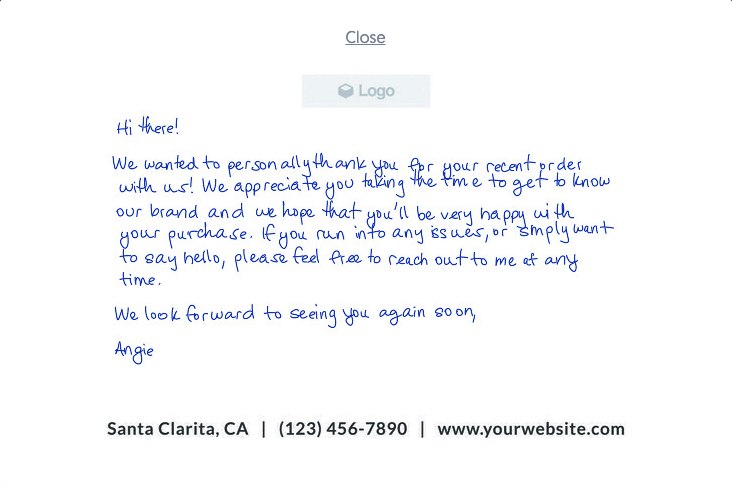 Close
Logo
Hi there!
We wanted to personally thank you for your recent order
with us! We appreciate you taking the time to get to know
our brand and we hope that you'll be very happy with
your purchase. If you run into any issues, or simply want
to say hello, please feel free to reach out to me at any
time.
We look forward to seeing you again soon,
Angie
Santa Clarita, CA | (123) 456-7890 | www.yourwebsite.com